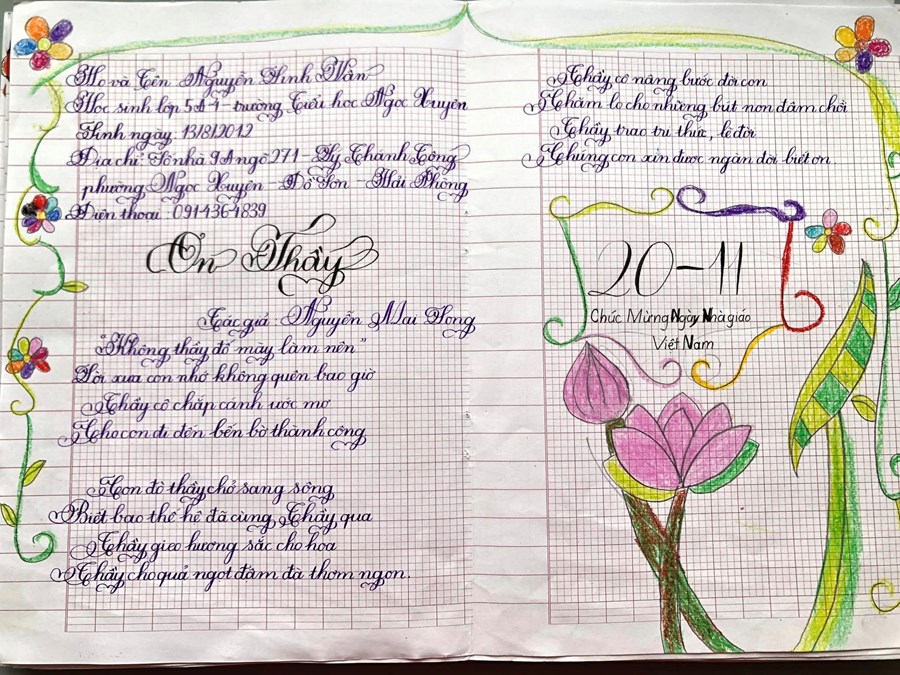 Họ và Tên: Nguyễn Linh Vân
Học sinh lớp 5A4 - trường Tiểu học Ngọc Xuyên
Sinh ngày: 13/8/2012
Địa chỉ: Số nhà 9A ngõ 271 - Lý Thánh Tông
phường Ngọc Xuyên - Đồ Sơn - Hải Phòng
Điện thoại: 0914364839
Ơn Thầy
Tác giả: Nguyễn Mai
"Không thầy đố mày làm nên"
Lời xưa con nhớ không quên bao giờ
Thầy cô chắp cánh ước mơ
Cho con đi đến bến bờ thành công
Con đò thầy chở sang sông
Biết bao thế hệ đã cùng Thầy qua
Thầy gieo hương sắc cho hoa
Thầy cho quả ngọt đậm đà thơm ngon.
Thầy cô nâng bước đời con
Chăm lo cho những bút non đâm chồi
Thầy trao tri thức, lẽ đời
Chúng con xin được ngàn đời biết ơn
20-11
Chúc Mừng Ngày Nhà giáo
Việt Nam